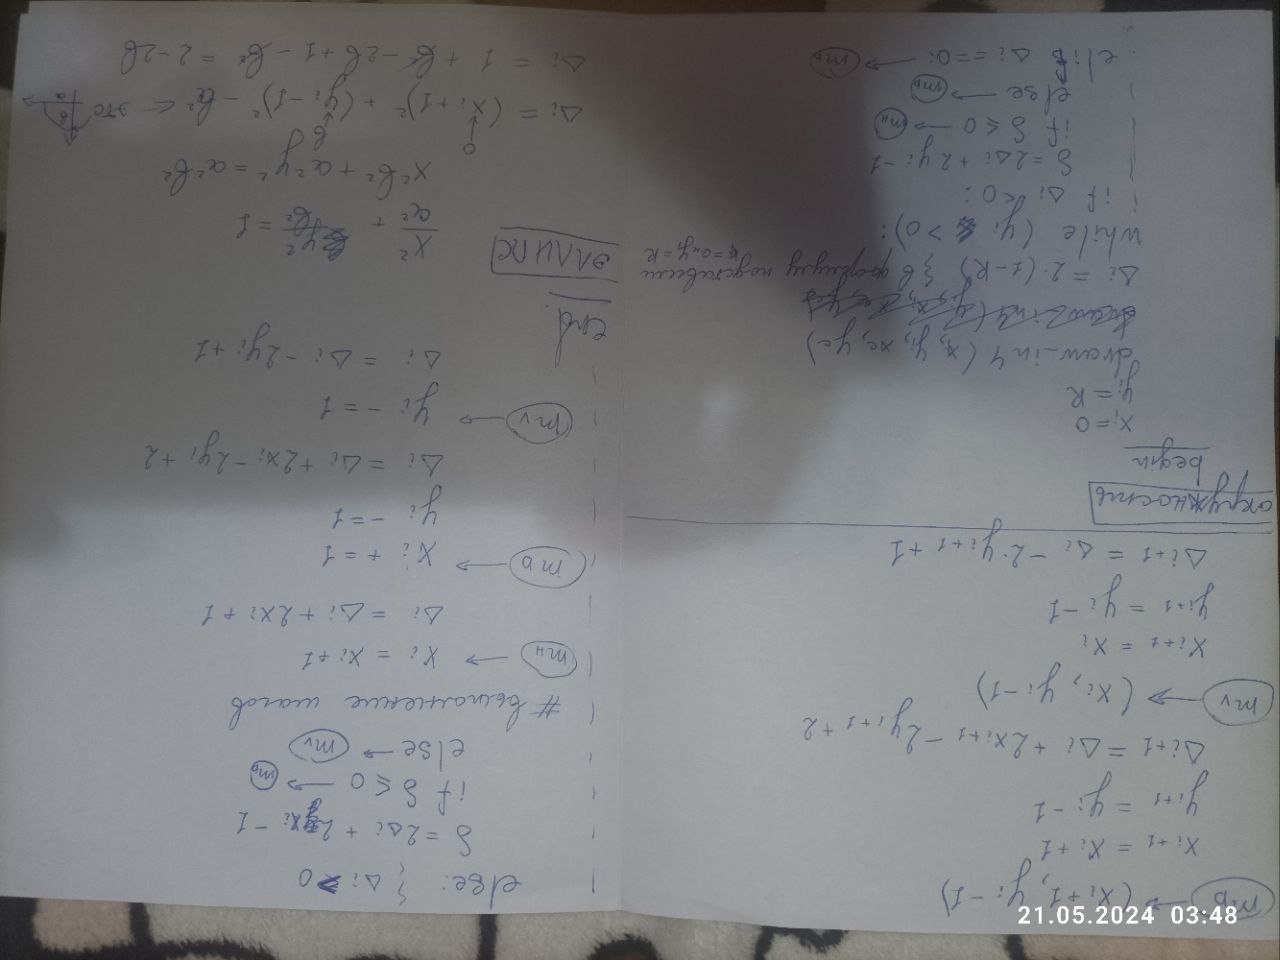 m_D → (x_i+1, y_i−1)
x_i+1 = x_i+1
y_i+1 = y_i−1
Δ_i+1 = Δ_i + 2x_i+1 − 2y_i+1 + 2
m_V → (x_i, y_i−1)
x_i+1 = x_i
y_i+1 = y_i−1
Δ_i+1 = Δ_i − 2·y_i+1 + 1
окружность
begin
x_i=0
y_i=R
draw_in4(x_i, y_i, xc, yc)
Δ_i = 2·(1−R) } в формулу подставили
x=0 и y_i=R
while (y_i > 0):
if Δ_i<0:
δ=2Δ_i+2y_i−1
if δ ≤ 0 → m_H
else → m_D
elif Δ_i==0: → m_D
else: } Δ_i>0
δ=2Δ_i + 2x_i − 1
if δ ≤ 0 → m_D
else → m_V
# выполнение шагов
m_H → x_i = x_i+1
Δ_i = Δ_i+2x_i+1
m_D → x_i += 1
y_i −= 1
Δ_i = Δ_i+2x_i−2y_i+2
m_V → y_i −= 1
Δ_i = Δ_i−2y_i+1
end
ЭЛЛИПС
x²/a² + y²/b² = 1
x²b² + a²y² = a²b²
0 b
Δ_i = (x_i+1)² + (y_i−1)² − b² ← это b a
Δ_i = 1 + b² −2b+1 − b² = 2−2b
21.05.2024 03:48